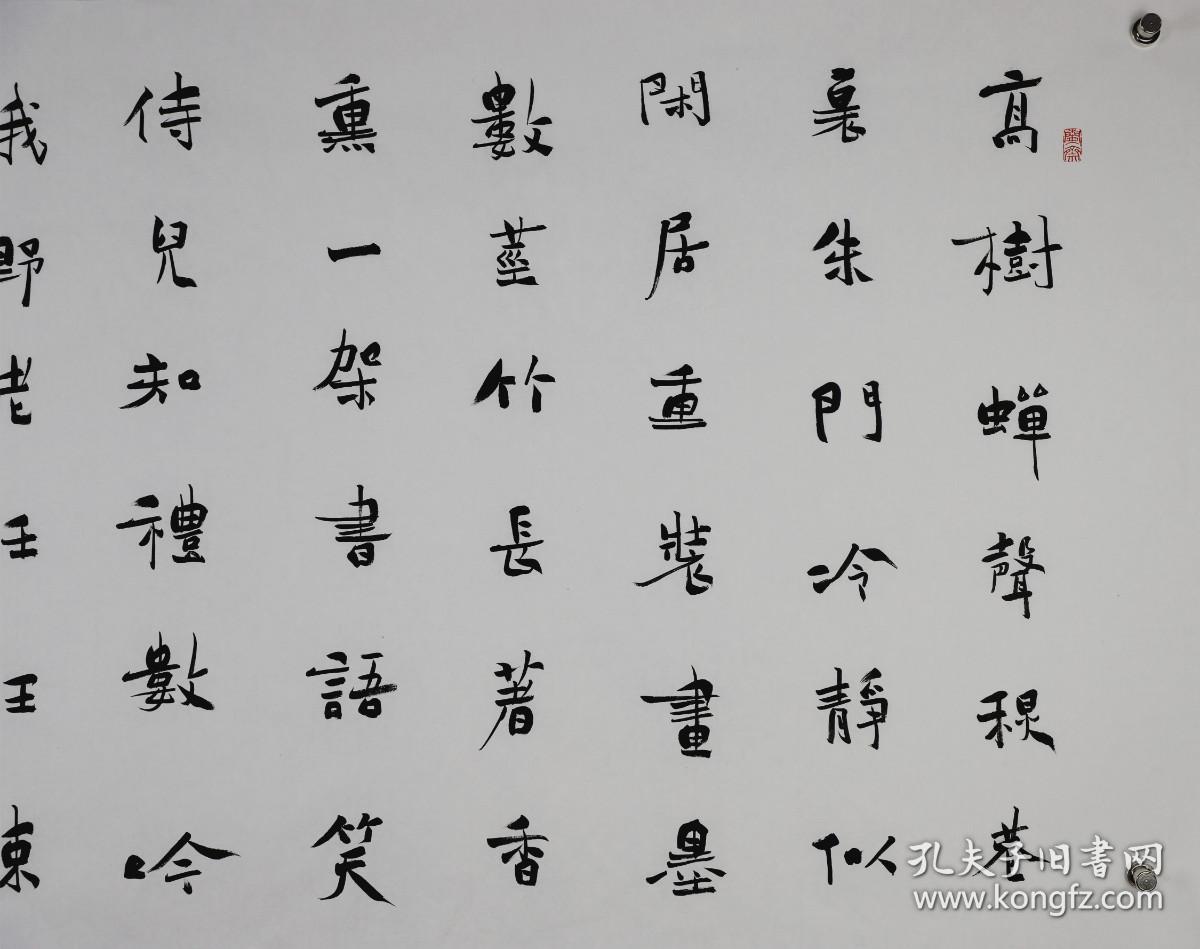 高樹蟬聲秋巷
裏朱門冷靜似
閑居重裝畫墨
數莖竹長著香
熏一架書語笑
侍兒知禮數吟
野老
孔夫子旧书网
www.kongfz.com